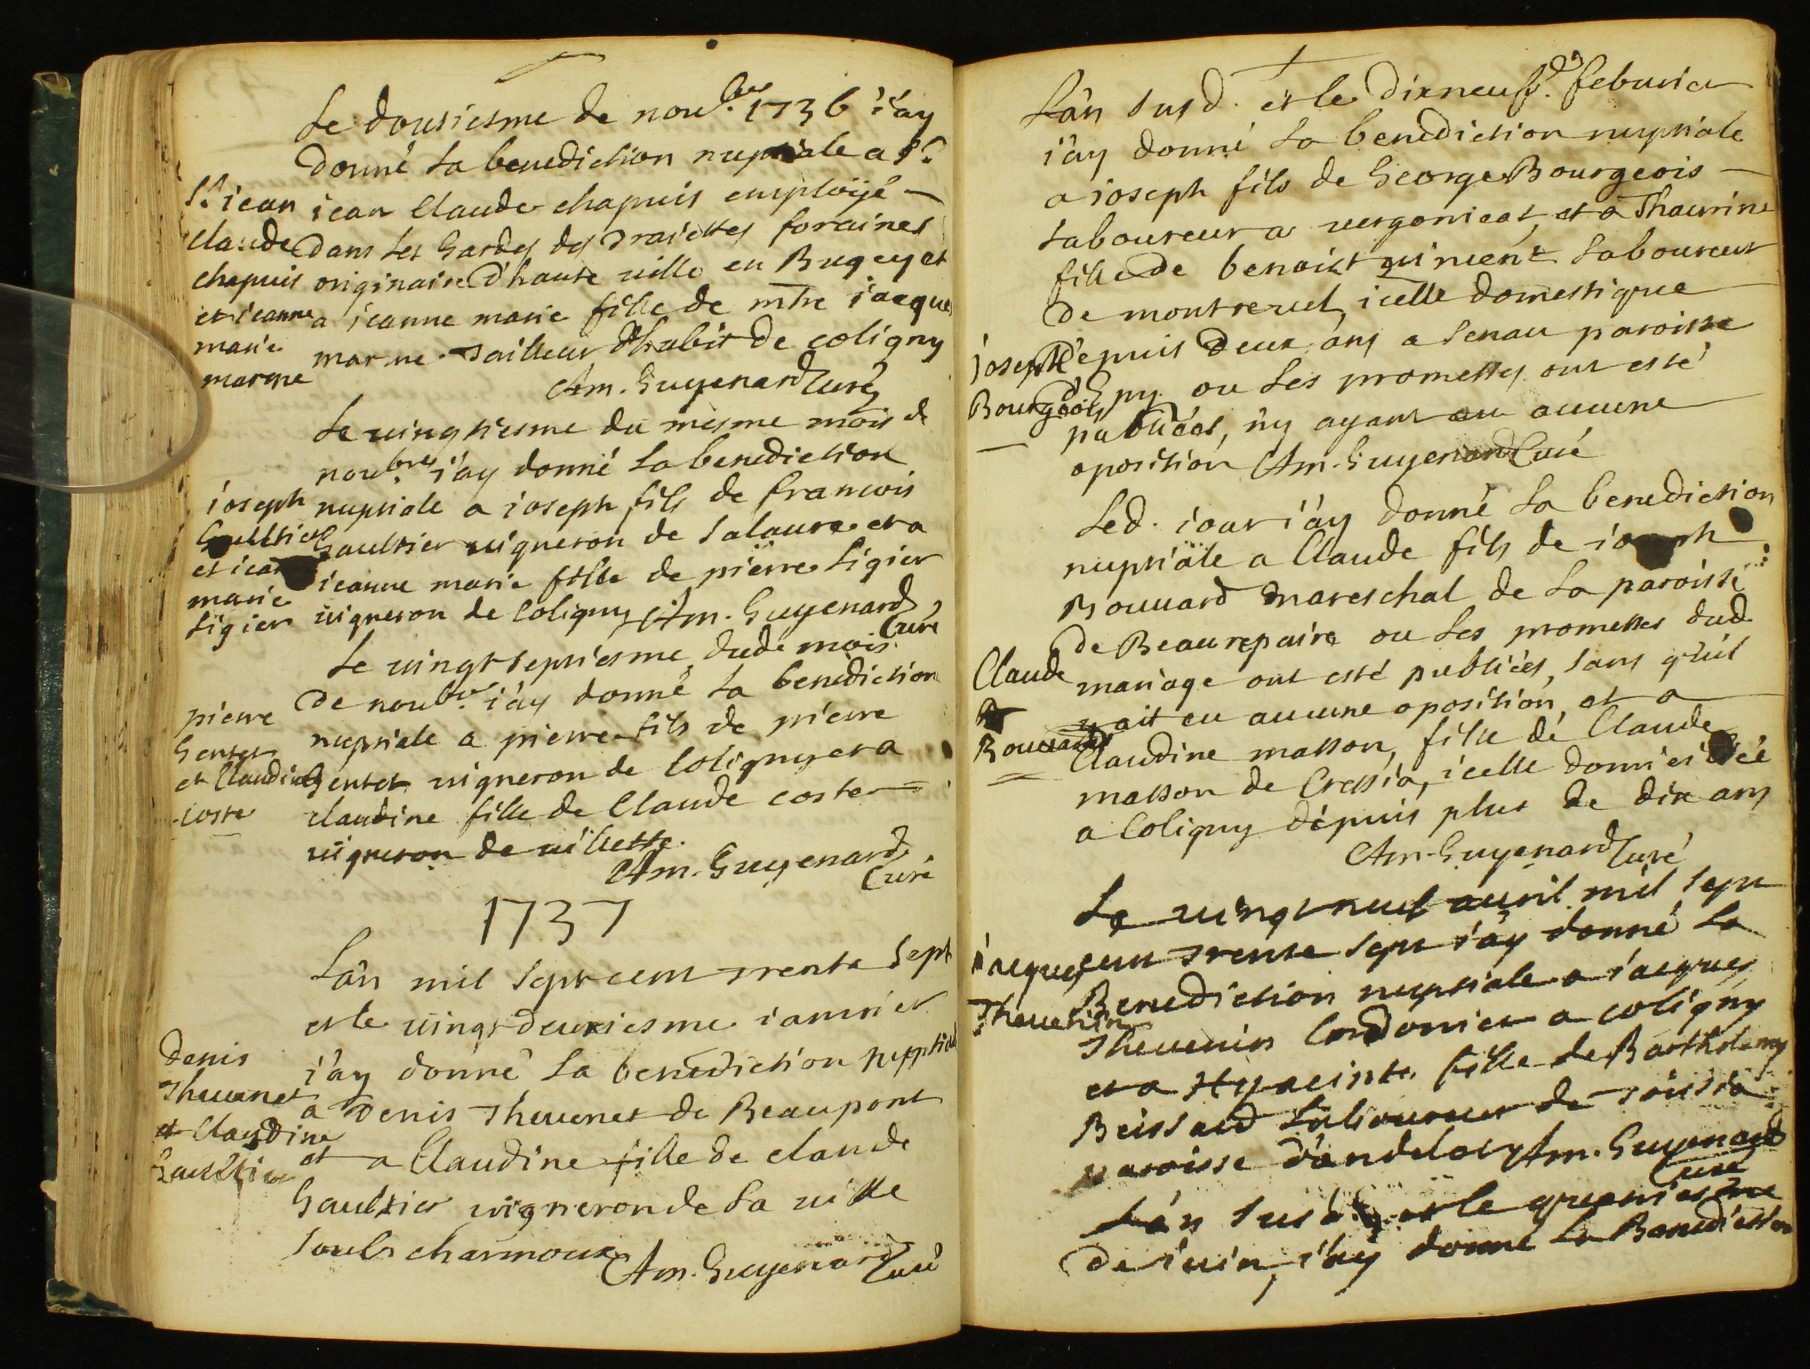 Le dousiesme de nou.bre 1736 i'ay
donné la benediction nuptiale a Sr.
Sr. iean
claude
chapuis
et ieanne
marie
marme
iean Claude chapuis employé
dans les Gardes des traiettes foraines
originaire d'haute ville en Bugey et
a ieanne marie fille de mtre iacque
marme tailleur d'habit de coligny
Am. Guyenard Curé
Le vingtiesme du mesme mois de
nou.bre i'ay donné la benediction
ioseph
Gaultier
et iean
marie
Ligier
nuptiale a ioseph fils de francois
Gaultier vigneron de Salaure et a
ieanne marie fille de pierre Ligier
vigneron de Coligny Am. Guyenard
Curé
Le vingt septiesme dud. mois
de nou.bre i'ay donné la benediction
pierre
Gentet
et Claudine
coste
nuptiale a pierre fils de pierre
Gentet vigneron de Coligny et a
claudine fille de Claude coste
vigneron de villette.
Am. Guyenard
Curé
1737
L'an mil sept cent trente sept
et le vingt deuxiesme ianvier
denis
Thevenet
et Claudine
Gaultier
i'ay donné la benediction nuptiale
a Denis Thevenet de Beaupont
et a Claudine fille de claude
Gaultier vigneron de la ville
soubs charmoux Am. Guyenard Curé
L'an susd. et le dixneuf.e febvrier
i'ay donné la benediction nuptiale
a ioseph fils de George Bourgeois
laboureur a vergonieat, et a Thaurine
fille de benoist vincent laboureur
de montrevel, icelle domestique
ioseph
Bourgeois
depuis deux ans a Senau paroisse
d'Epy ou les promesses ont esté
publiées, n'y ayant eu aucune
oposition Am. Guyenard Curé
Led. iour i'ay donné la benediction
nuptiale a Claude fils de ioseph
Bouvard mareschal de la paroisse
de Beaurepaire ou les promesses dud.
Claude
Bouvard
mariage ont esté publiées, sans qu'il
y ait eu aucune oposition, et a
Claudine masson, fille de Claude
masson de Cressia, icelle domiciliée
a Coligny depuis plus de dix ans
Am. Guyenard Curé
Le vingt neuf avril mil sept
iacques
Thevenin
cent trente sept i'ay donné la
Benediction nuptiale a iacques
Thevenin Cordonier a coligny
et a Hyacinte fille de Bartholemy
Beissard laboureur de toissia
paroisse d'andelot Am. Guyenard
Curé
L'an susd. et le quatriesme
de iuin, i'ay donné la Benediction